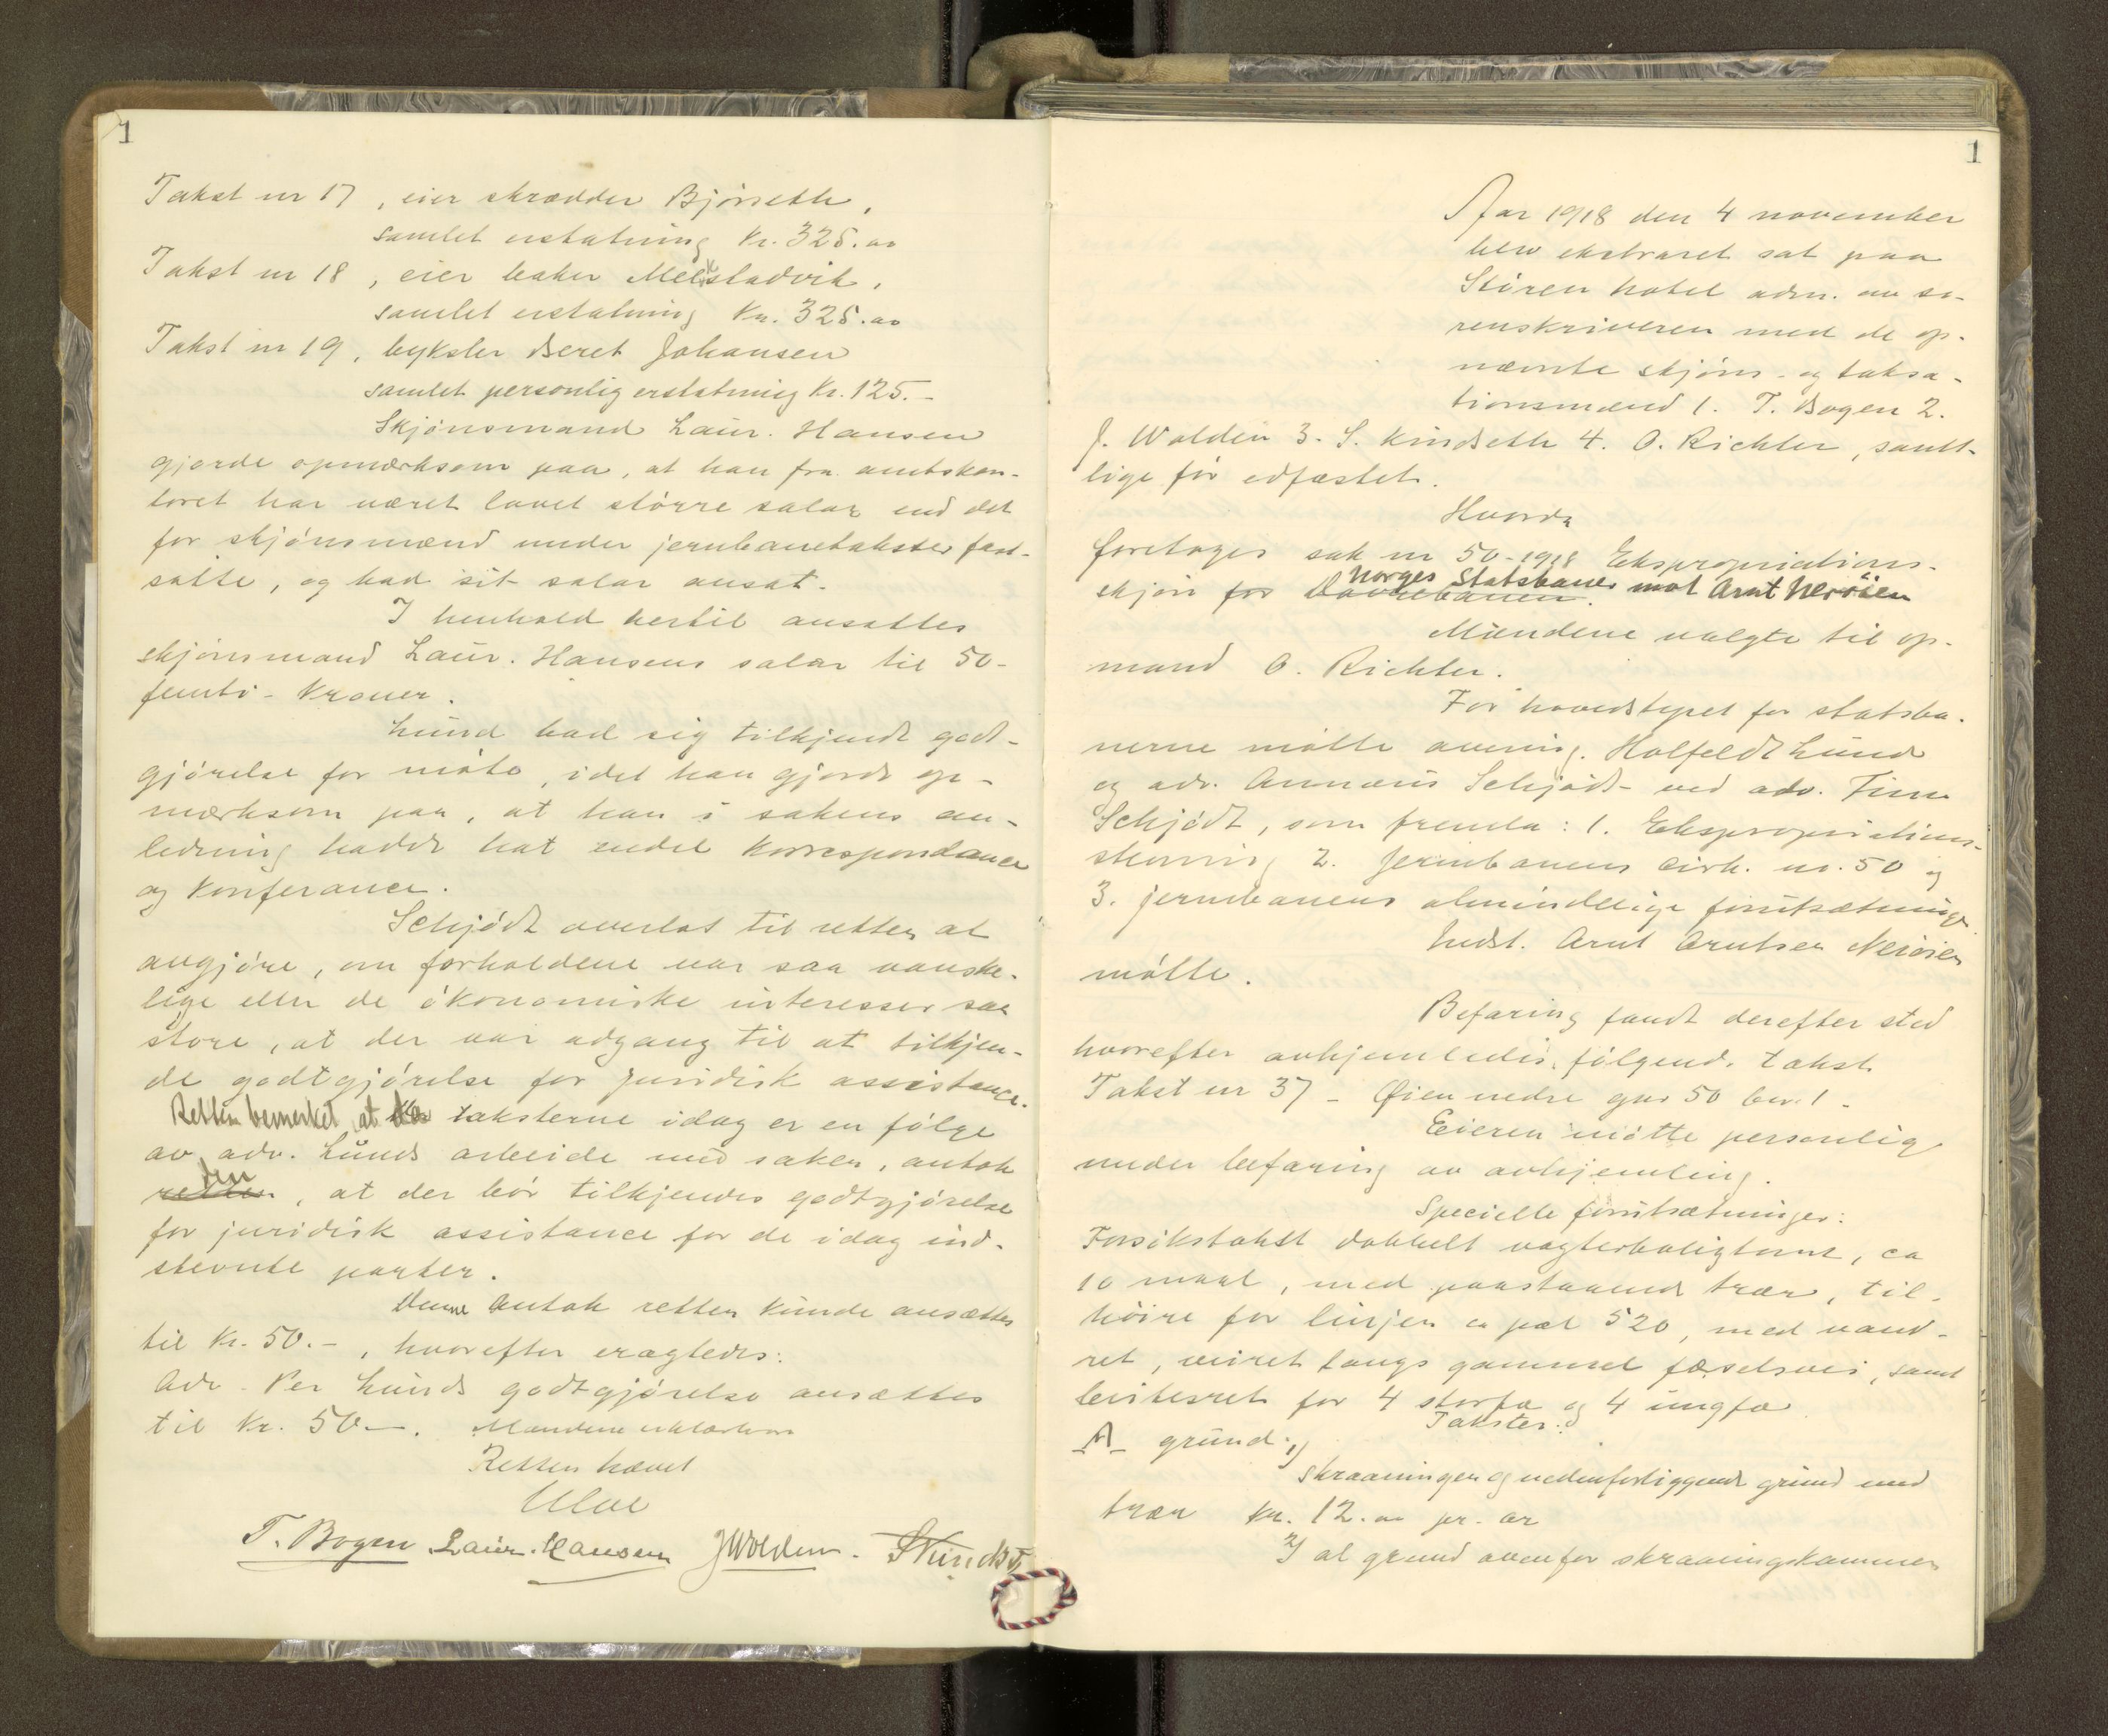 1
Takst nr 17, eier skrædder Bjørseth,
samlet erstatning Kr. 325.oo
Takst nr 18, eier baker Melkstadvik,
samlet erstatning Kr. 325.oo
Takst nr 19, byksler Beret Johansen
samlet personlig erstatning Kr. 125.-
Skjønsmand Laur. Hansen
gjorde opmerksom paa, at han fra amtskon-
toret har været lovet større salar end det
for skjønsmænd under jernbanetakster fast-
satte, og bad sit salar ansat.
I henhold hertil ansattes
skjønsmand Laur. Hansens salar til 50-
femti - Kroner.
Lund bad sig tilkjendt godt-
gjørelse for møte, idet han gjorde op-
merksom paa, at han i sakens an-
ledning hadde hat endel Korrespondance
og Konferance.
Schjødt overlot til retten at
avgjøre, om forholdene var saa vanske-
lige eller de økonomiske interesser saa
store, at der var adgang til at tilkjen-
de godtgjørelse for juridisk assistance.
Retten bemerket, at taksterne idag er en følge
av adv. Lunds arbeide med saken, antok
den
retten, at der bør tilkjendes godtgjørelse
for juridisk assistance for de idag ind-
stevnte parter.
Denne antok retten kunde ansættes
til Kr. 50.-, hvorefter eragtedes:
Adv. Per Lunds godtgjørelse ansættes
til Kr. 50.-.
Retten hævet
T. Bogen Laur. Hansen JWolden. SKindset
1
Aar 1918 den 4 november
blev ekstraret sat paa
Støren hotel adm. av so-
renskriveren med de op-
nævnte skjøns- og taksa-
tionsmænd 1. T. Bogen 2.
J. Wolden 3. S. Kindseth 4. O. Richter, samt-
lige før edfæstet.
Hvorda
foretoges sak nr 50-1918 Ekspropriations-
Norges Statsbaner mot Arnt Nerøien
skjøn for Dovrebanen.
Mændene valgte til op-
mand O. Richter.
For hovedstyret for statsba-
nerne møtte avening. Holfeldt Lund
og adv. Annæus Schjødt ved adv. Finn
Schjødt, som fremla: 1. Ekspropriations-
stevning 2. Jernbanens cirk. nr. 50 og
3. jernbanens almindelige forutsætninger.
Indst. Arnt Arntsen Nerøien
møtte.
Befaring fandt derefter sted
hvorefter avhjemledes følgende takst.
Takst nr 37 - Øien nedre gnr 50 bnr. 1 -
Eieren møtte personlig
under befaring av avhjemling.
Specielle forutsætninger:
Forsikstakst dobbelt vogterboligtomt, ca
10 maal, med paastaaende trær, til-
høire for linjen ca pæl 520, med vand-
ret, veiret langs gammel fæselsvei, samt
beitesret for 4 storfæ og 4 ungfæ
Takster:
A grund: 1)
Skraaningen og nedenforliggende grund med
trær Kr. 12.oo pr. ar
2) al grund ovenfor skraaningskammen